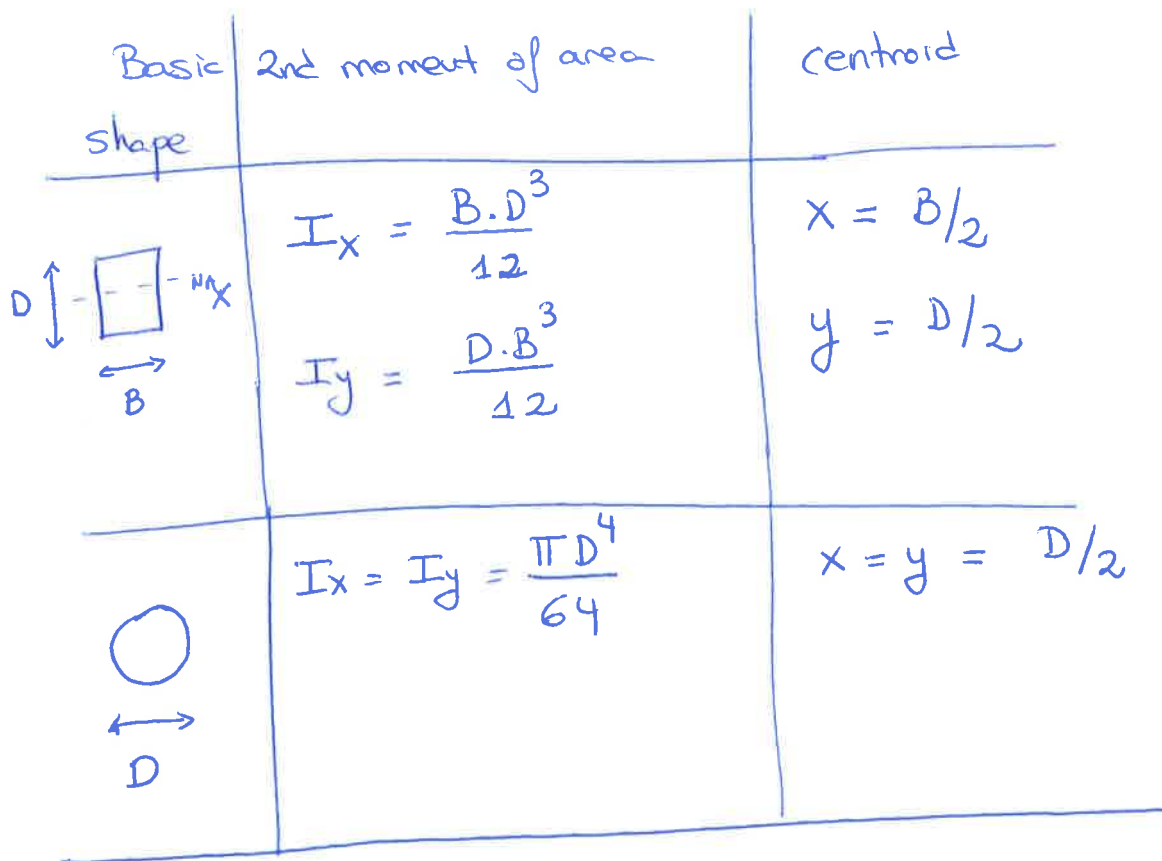 Basic shape
2nd moment of area
centroid
D
NA
X
B
Ix = B.D³/12
Iy = D.B³/12
x = B/2
y = D/2
D
Ix = Iy = πD⁴/64
x = y = D/2